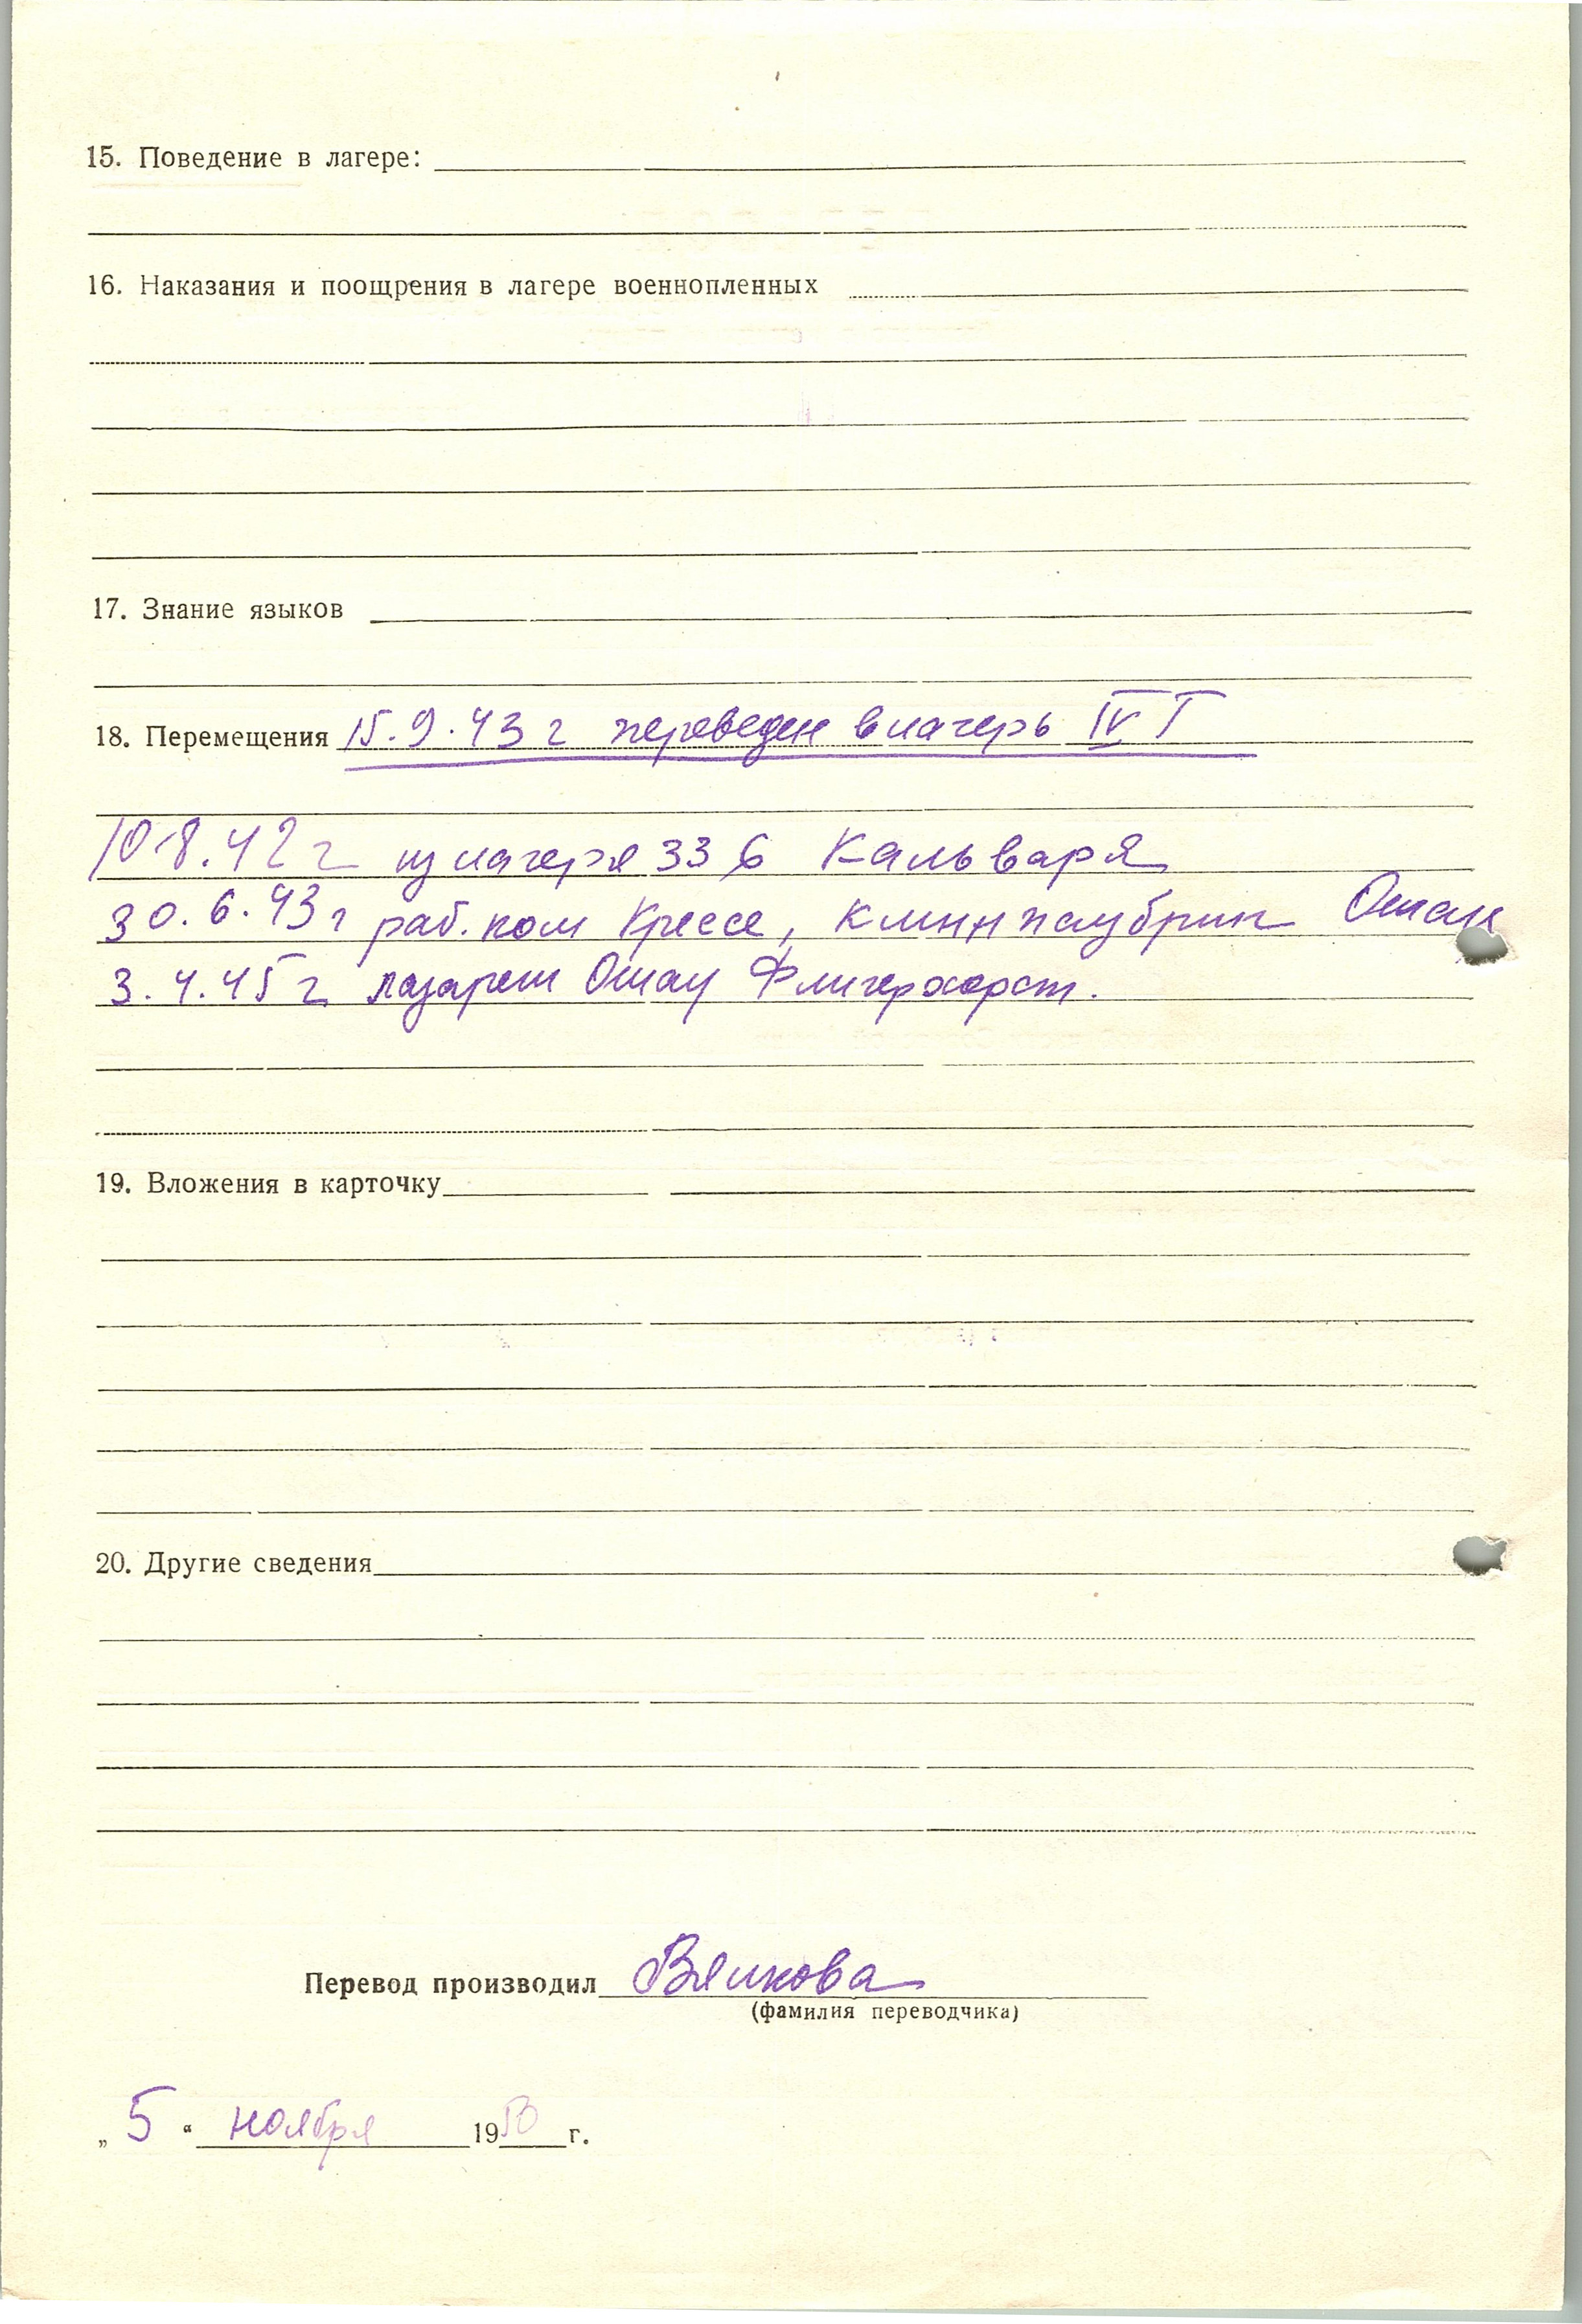 15. Поведение в лагере:
16. Наказания и поощрения в лагере военнопленных
17. Знание языков
18. Перемещения 15.9.43 г переведен в лагерь IV Г
10.8.42 г из лагеря 336 Кальваря
30.6.43 г раб. ком Крессе, Ошац
3.4.45 г лазарет Ошац Флигерхорст.
19. Вложения в карточку
20. Другие сведения
Перевод производил
(фамилия переводчика)
„ 5 “ ноября 1950 г.